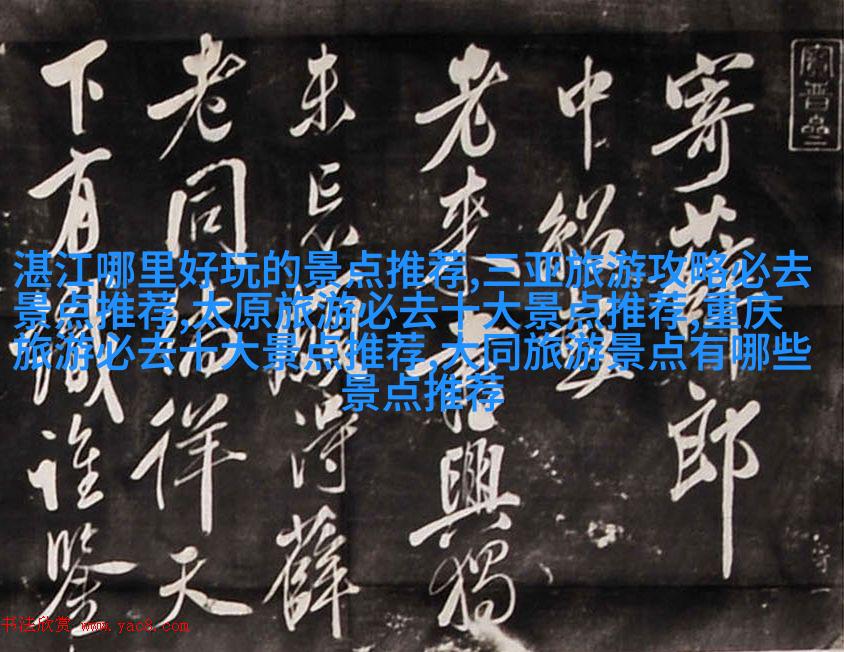 寄薛郎
中紹彭
老來書興獨
未忘頗得薛
老同徜徉天
下有識誰鑒
湛江哪里好玩的景点推荐,三亚旅游攻略必去
景点推荐,太原旅游必去十大景点推荐,重庆
旅游必去十大景点推荐,大同旅游景点有哪些
景点推荐
书法欣赏 www.yac8.com